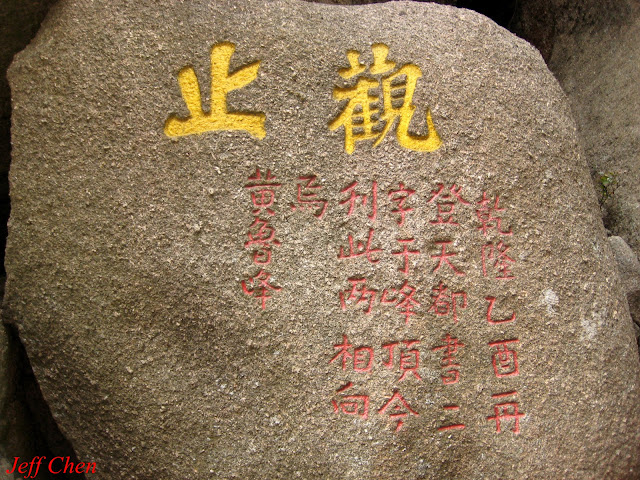 觀止
乾隆乙酉再
登天都書二
字于峰頂今
利此两相向
焉
黄魯峰
Jeff Chen